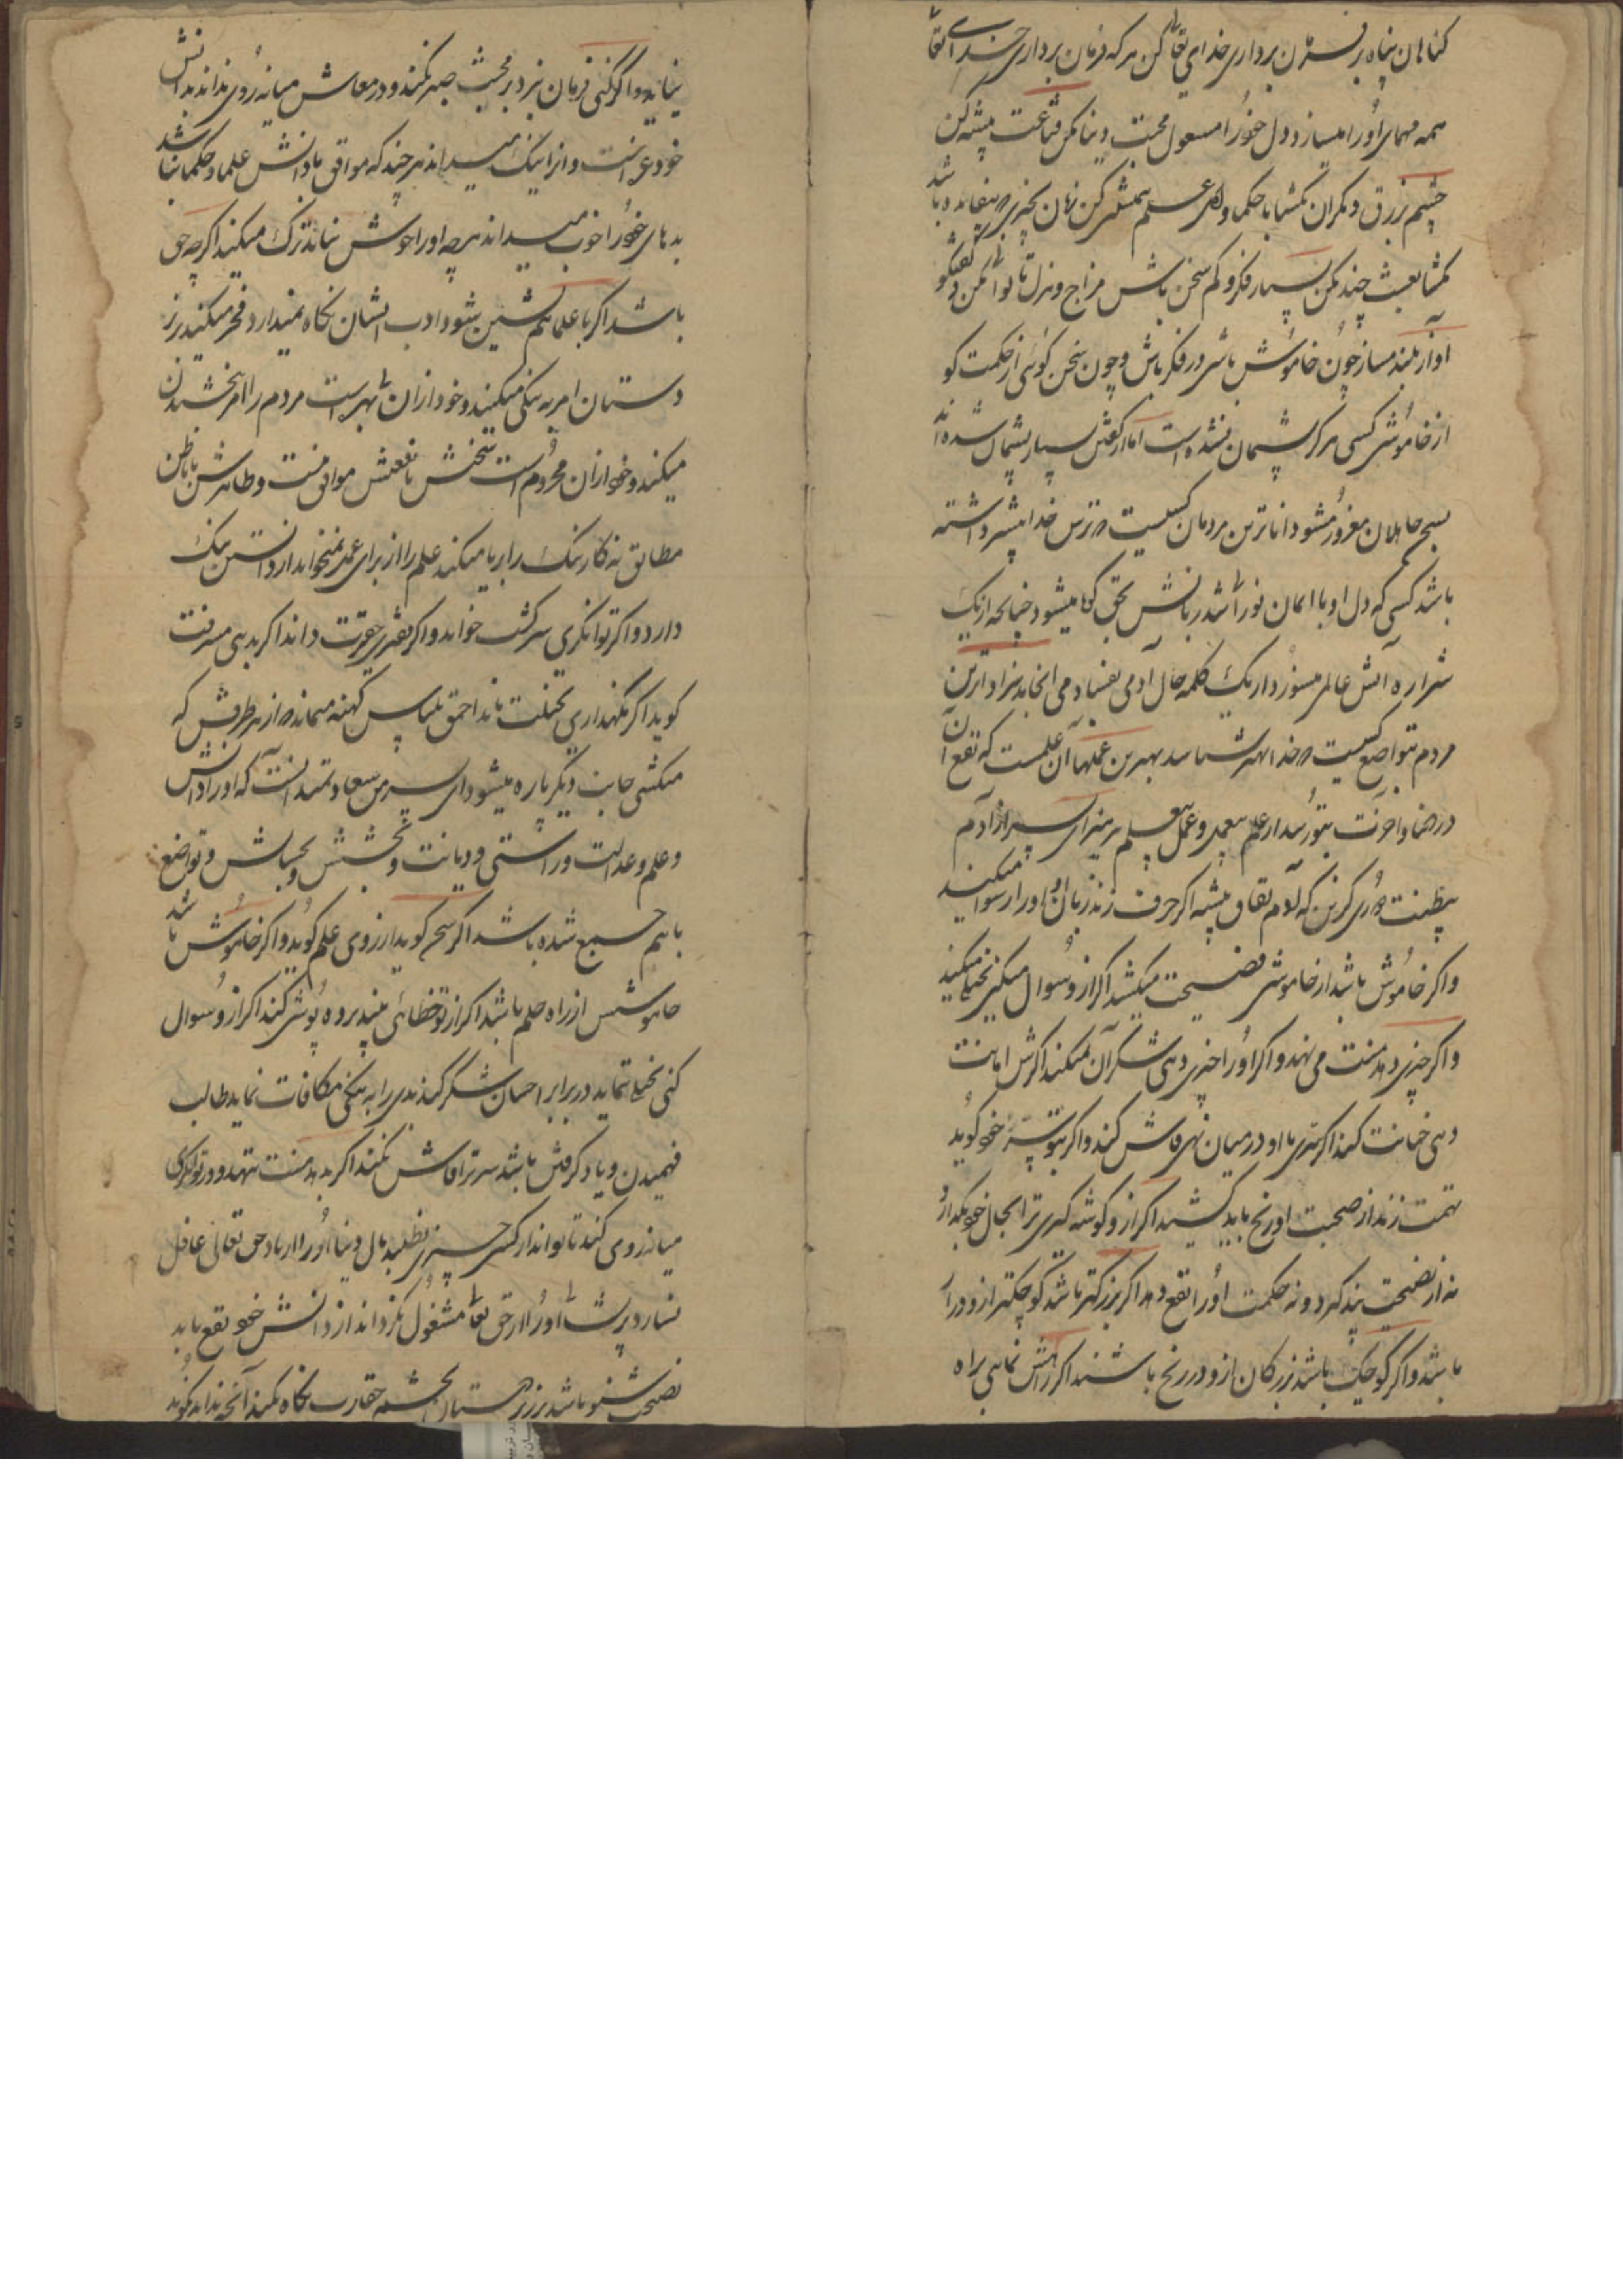 کناهان پناه بر فرمان برداری خدای تعالی کن هر که فرمان برداری خدای تعا
همه مهمای او را میسازد دل خود را مشغول محبت دنیا مکن قناعت پیشه کن
چشم بر رزق دیکران مکشا با حکما و اهل علم همنشینی کن زبان بچیزی که بیفایده باشد
مکشا بعبث خنده مکن بسیار فکر و کم سخن باش مزاح و هزل تا توانی مکن در کفتکو
آواز بلند مساز چون خاموش باشی در فکر باش و چون سخن کوئی از حکمت کو
از خاموشی کسی هرکز پشیمان نشده است اما از کفتن بسیار پشیمان شده اند
بسبح جاهلان مغرور مشو داناترین مردمان کسیست که ترس خدا بیشتر داشته
باشد کسی که دل او با ایمان نورانی باشد زبانش بحق کویا میشود چنانچه از یک
شراره آتش عالمی میسوزد از یک کلمه حال آدمی بفساد می انجامد سزاوارترین
مردم بتواضع کسیست که خدا بهتر شناسد بهترین عملها آن علمست که نفع آن
در دنیا و آخرت بتو رسد از علم بی عمل و عمل بی علم بپرهیز ای پسر از آدم
بدطینت دوری کزین که آدم نفاق پیشه اکر حرف زند زبان او او را رسوا میکند
و اکر خاموش باشد از خاموشی فضیحت میکشد اکر از و سوال میکنی بخیلی میکند
و اکر چیزی دهد منت می نهد و اکر او را چیزی دهی شکر آن نمیکند اکرش امانت
دهی خیانت کند اکر سری با او در میان نهی فاش کند و اکر بتو سر خود کوید
تهمت زند از صحبت او رنج باید کشید اکر از و کوشه کیری ترا بحال خود نکذارد
نه از نصیحت پند کیرد و نه حکمت او را نفع دهد اکر بزرکتر باشد کوچکتر از و در آزار
باشد و اکر کوچک باشد بزرکان از و در رنج باشند اکر راهش نمایی براه
نیاید و اکر کنی فرمان نبرد بر محبت صبر نکند و در معاش میانه روی نداند بدانش
خود غره است و انرا نیک میداند هر چند که موافق با دانش علما و حکما نباشد
بدهای خود را خوب میداند هرچه او را خوش نیاید ترک میکند اکرچه حق
باشد اکر با علما همنشین شود ادب ایشان نکاه نمیدارد و فخر میکند بر زیر
دستان امر به نیکی میکند و خود از آن بی بهره است مردم را امر بخشیدن
میکند و خود از آن محروم است سخنش با فعلش موافق نیست و ظاهرش با باطن
مطابق نه کار نیک را بریا میکند علم را از برای عمل نمیخواهد از دانستن نیک
دارد و اکر توانکری سرکشت خواند و اکر فقیری حقیرت داند اکر بدهی مسرفت
کوید اکر نکهداری بخیلت نامد احمق بلباس کهنه میماند که از هر طرفش که
میکشی جانب دیکر پاره میشود ای پسر من سعادتمند آنست که او را دانش
و علم و عدالت و راستی و دیانت و بخشش و باشش و تواضع
با هم جمع شده باشد اکر سخن کوید از روی علم کوید و اکر خاموش باشد
خاموشیش از راه حلم باشد اکر از تو خطائی بیند پرده پوشی کند اکر از و سوال
کنی بخیلی ننماید در برابر احسان شکر کند بدی را به نیکی مکافات نماید طالب
فهمیدن و یاد کرفتن باشد سر ترا فاش نکند اکر بدهد منت ننهد و در توانکری
میانه روی کند تا تواند از کسی چیزی نطلبد مال دنیا او را از یاد حق تعالی غافل
نسازد پریشانی او را از حق تعالی مشغول نکرداند از دانش خود نفع یابد
نصیحت شنو باشد بر زیر دستان بچشم حقارت نکاه نکند آنچه نداند نکوید